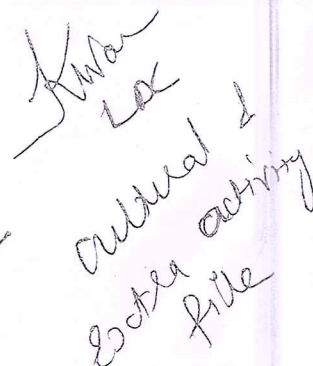 Kiran
cultural &
Extra activity
file